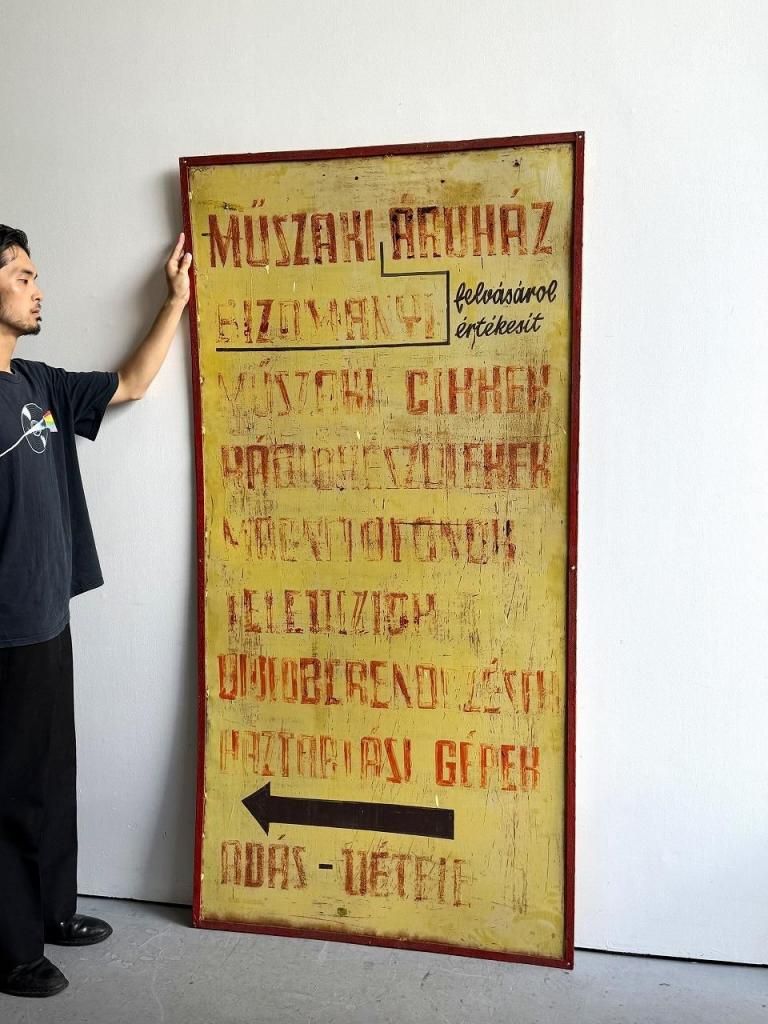 MŰSZAKI ÁRUHÁZ
BIZOMÁNYI
felvásárol
értékesít
MŰSZAKI CIKKEK
RÁDIÓKÉSZÜLÉKEK
MAGNETOFONOK
TELEVIZIÓK
VIDEOBERENDEZÉSEK
HÁZTARTÁSI GÉPEK
ADÁS - VÉTELE